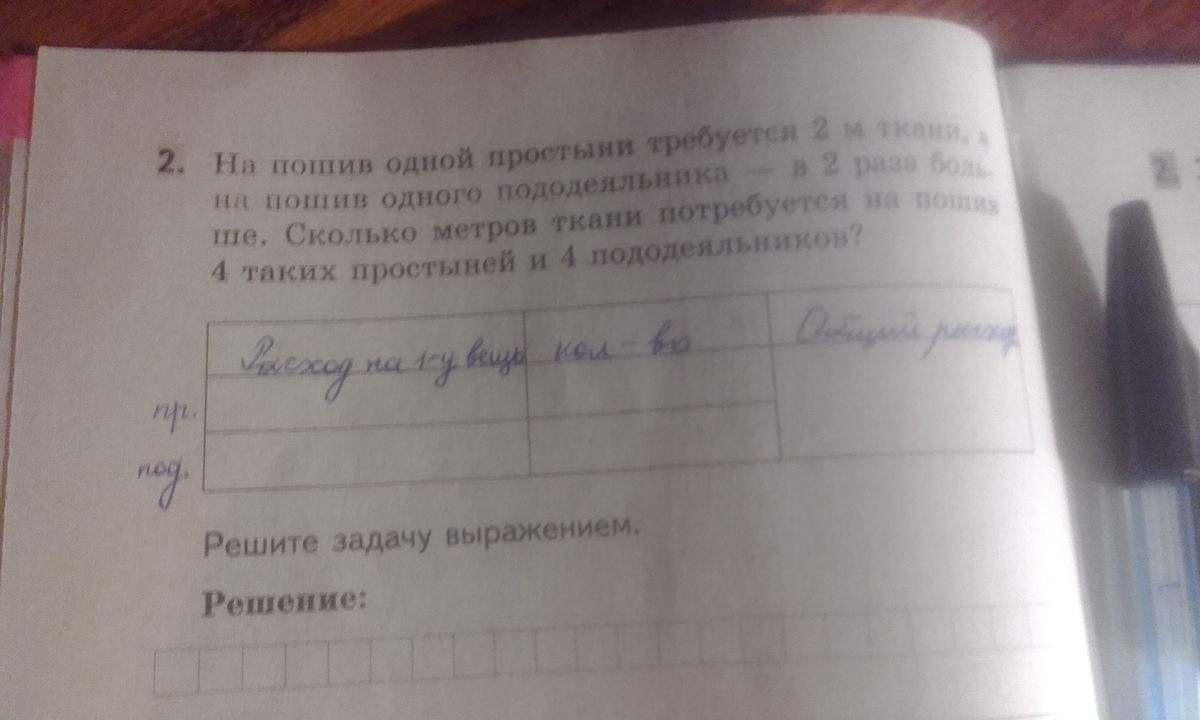 2. На пошив одной простыни требуется 2 м ткани, а
на пошив одного пододеяльника — в 2 раза боль-
ше. Сколько метров ткани потребуется на пошив
4 таких простыней и 4 пододеяльников?
Расход на 1-у вещь кол-во Общий расход
пр.
под.
Решите задачу выражением.
Решение:
2.